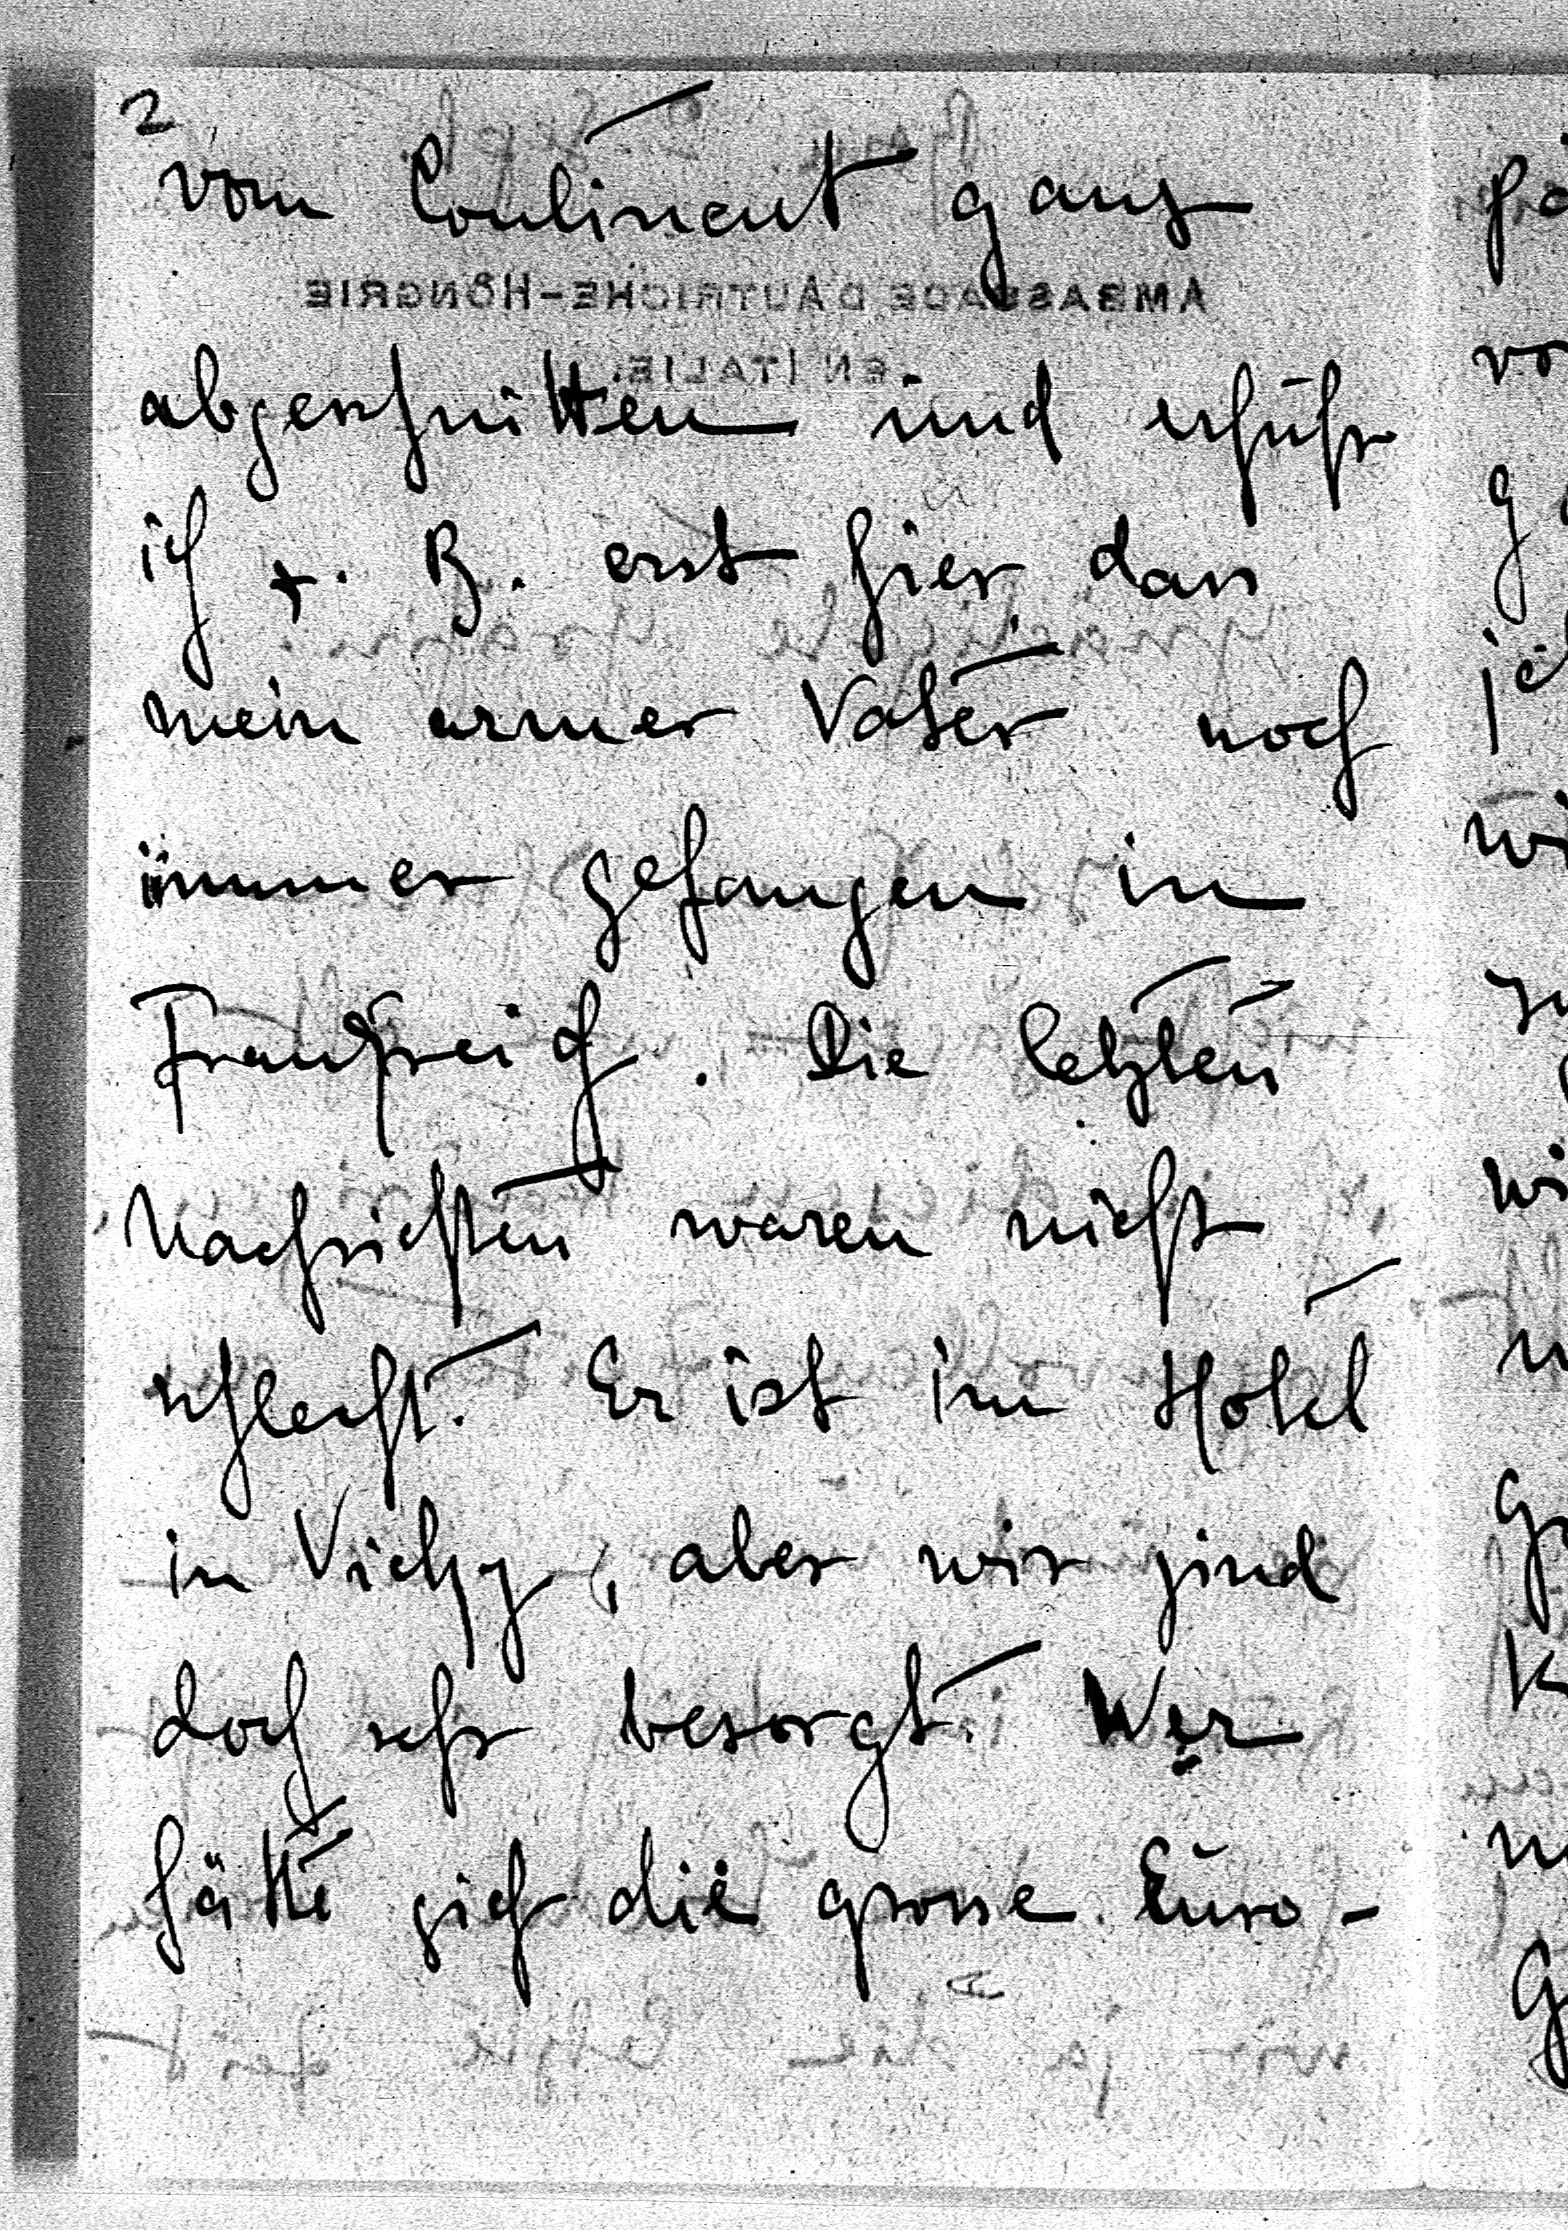 2
vom Continent ganz
AMBASSADE D'AUTRICHE-HONGRIE
EN ITALIE.
abgeschnitten und erfuhr
ich z. B. erst hier dass
mein armer Vater noch
immer gefangen in
Frankreich. Die letzten
Nachrichten waren nicht
schlecht. Er ist im Hotel
in Vichy, aber wir sind
doch sehr besorgt. Wer
hätte sich die grosse Euro-